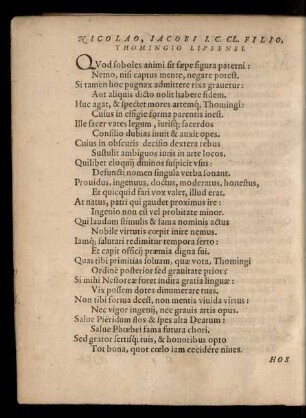 NICOLAO, IACOBI I. C. CL. FILIO,
THOMINGIO LIPSENSI.
QVod soboles animi sit sæpe figura paterni:
Nemo, nisi captus mente, negare potest.
Si tamen hoc pugnax admittere rixa grauetur:
Aut aliquis dicto nolit habere fidem.
Huc agat, & spectet mores artemq́, Thomingi:
Cuius in effigie forma parentis inest.
Ille sacer vates legum, iurisq́; sacerdos
Consilio dubias iuuit & auxit opes.
Cuius in obscuris decisio dextera rebus
Sustulit ambiguos ioris in arte locos.
Quilibet eloquij diuinos suspicit vsus:
Defuncti nomen singula verba sonant.
Prouidus, ingenuus, doctus, moderatus, honestus,
Et quicquid fari vox valet, illud erat.
At natus, patri qui gaudet proximus ire:
Ingenio non est vel probitate minor.
Qui laudum stimulis & fama nominis actus
Nobile virtutis cœpit inire nemus.
Iamq́; salutari redimitur tempora serto:
Et capit officij præmia digna sui.
Quas tibi primitias soluam, quæ vota, Thomingi
Ordine posterior sed grauitate prior?
Si mihi Nestoreæ foret indita gratia linguæ:
Vix possem dotes dinumerare tuas.
Non tibi forma deest, non mentis viuida virtus:
Nec vigor ingenij, nec grauis artis opus.
Salue Pieridum flos & spes alta Dearum:
Salue Phœbei fama futura chori.
Sed grator sertisq́; tuis, & honoribus opto
Tot bona, quot cœlo iam cecidêre niues.
HOS